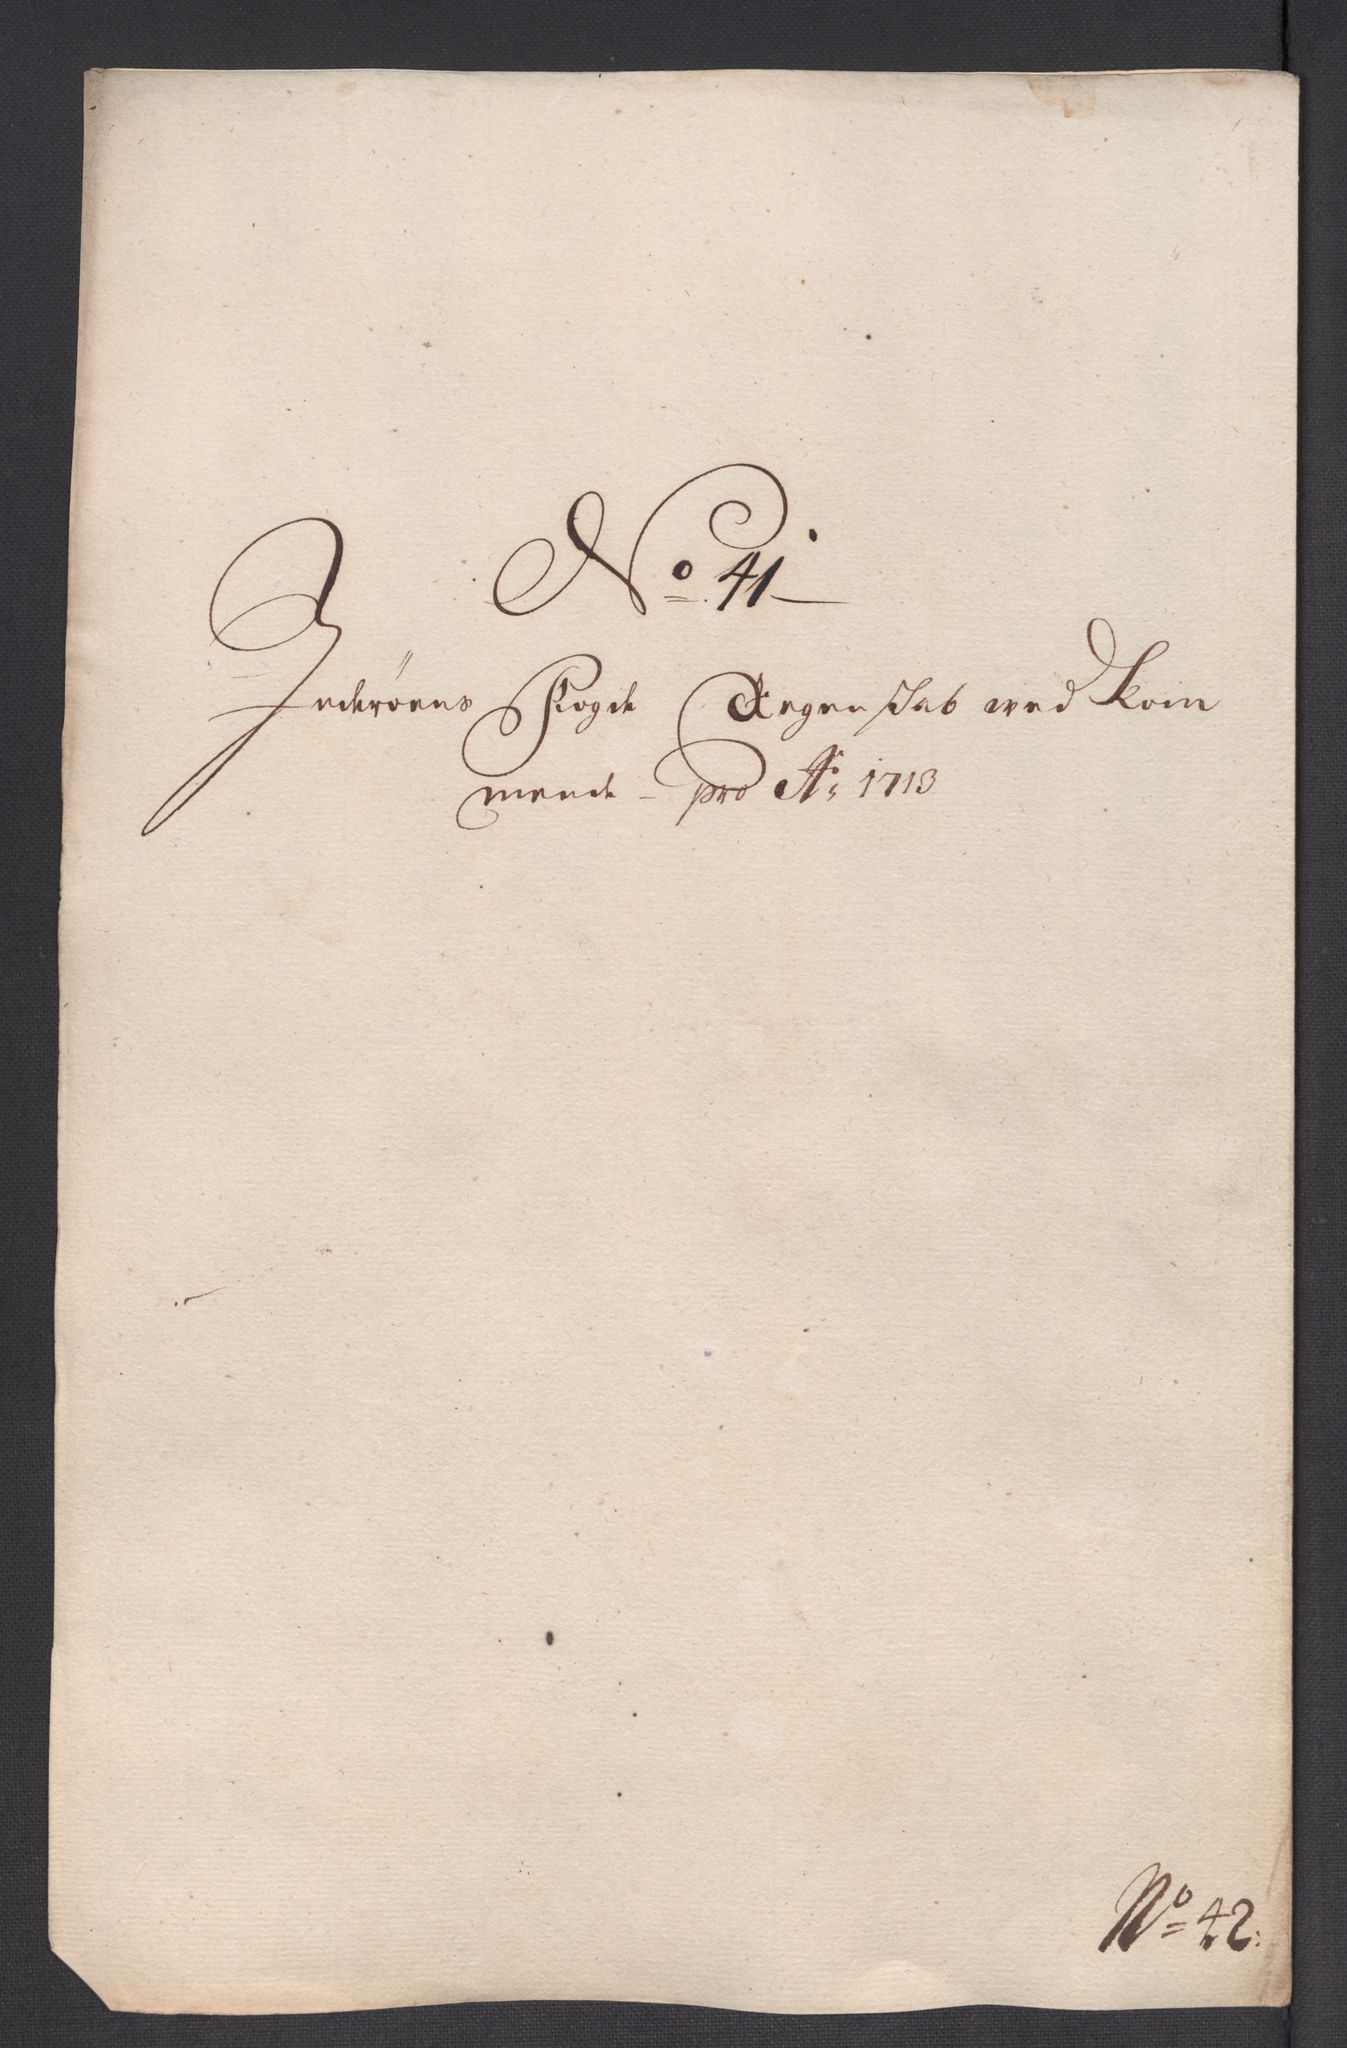 No 41
Inderöens Fogde Regenskab ved kom
mende - pro Ao 1713
No 42: